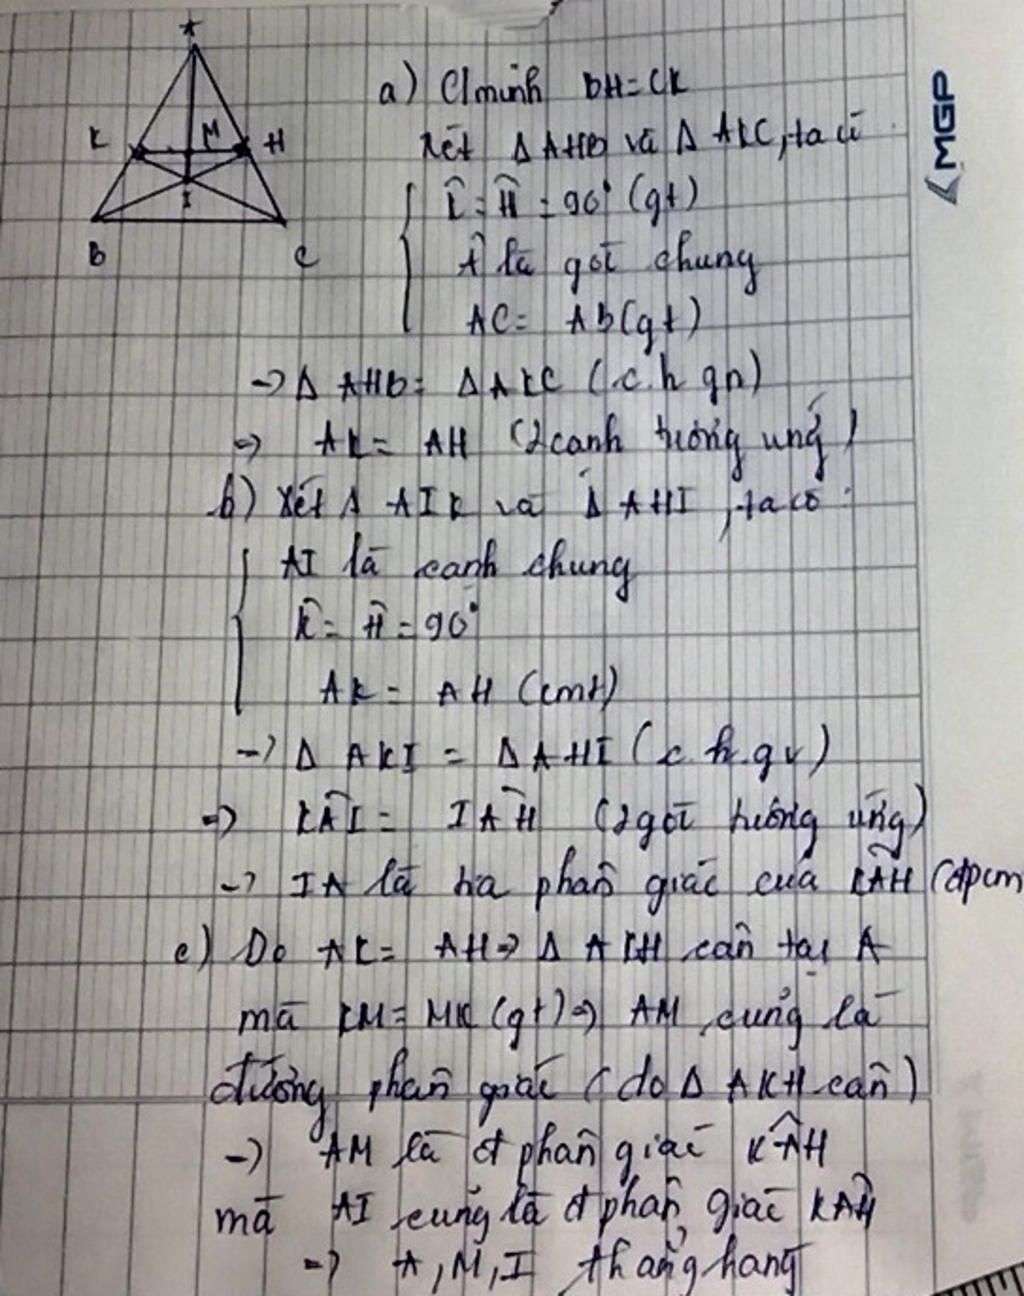 A
K
M
H
I
B
C
MGP
a) C/minh BH=CK
Xét Δ AHB và Δ AKC, ta có
K̂ = Ĥ = 90° (gt)
Â là góc chung
AC = AB (gt)
-> Δ AHB = Δ AKC (c.h gn)
=> AK = AH (2 cạnh tương ứng)
b) Xét Δ AIK và Δ AHI, ta có:
AI là cạnh chung
K̂ = Ĥ = 90°
AK = AH (cmt)
-> Δ AKI = Δ AHI (c.h.gv)
=> KÂI = IÂH (2 góc tương ứng)
-> IA là tia phân giác của KÂH (đpcm
c) Do AK = AH => Δ AKH cân tại A
mà KM = MK (gt) => AM cũng là
đường phân giác (do Δ AKH cân)
-> AM là đ phân giác KÂH
mà AI cũng là đ phân giác KÂH
=> A, M, I thẳng hàng